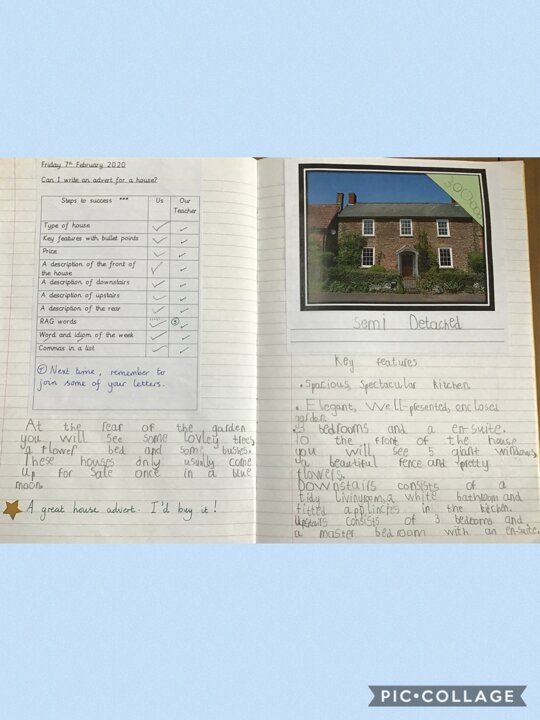 Friday 7th February 2020
Can I write an advert for a house?
Steps to success ***
Us
Our Teacher
Type of house
Key features with bullet points
Price
A description of the front of
the house
A description of downstairs
A description of upstairs
A description of the rear
RAG words
Word and idiom of the week
Commas in a list
Next time, remember to
join some of your letters.
At the rear of the garden
you will see some lovley trees,
a flower bed and some bushes.
These houses only usually come
up for sale once in a blue
moon.
A great house advert. I'd buy it!
Semi Detached
Key features
• Spacious, Spectacular Kitchen
• Elegant, well-presented, encloses
garden
• 3 bedrooms and a en-suite.
To the front of the house
you will see 5 giant windows,
a beautiful fence and pretty
flowers.
Downstairs consists of a
tidy livingroom, a white bathroom and
fitted applinces in the kitchen.
Upstairs consists of 3 bedrooms and
a master bedroom with an en-suite.
PIC•COLLAGE